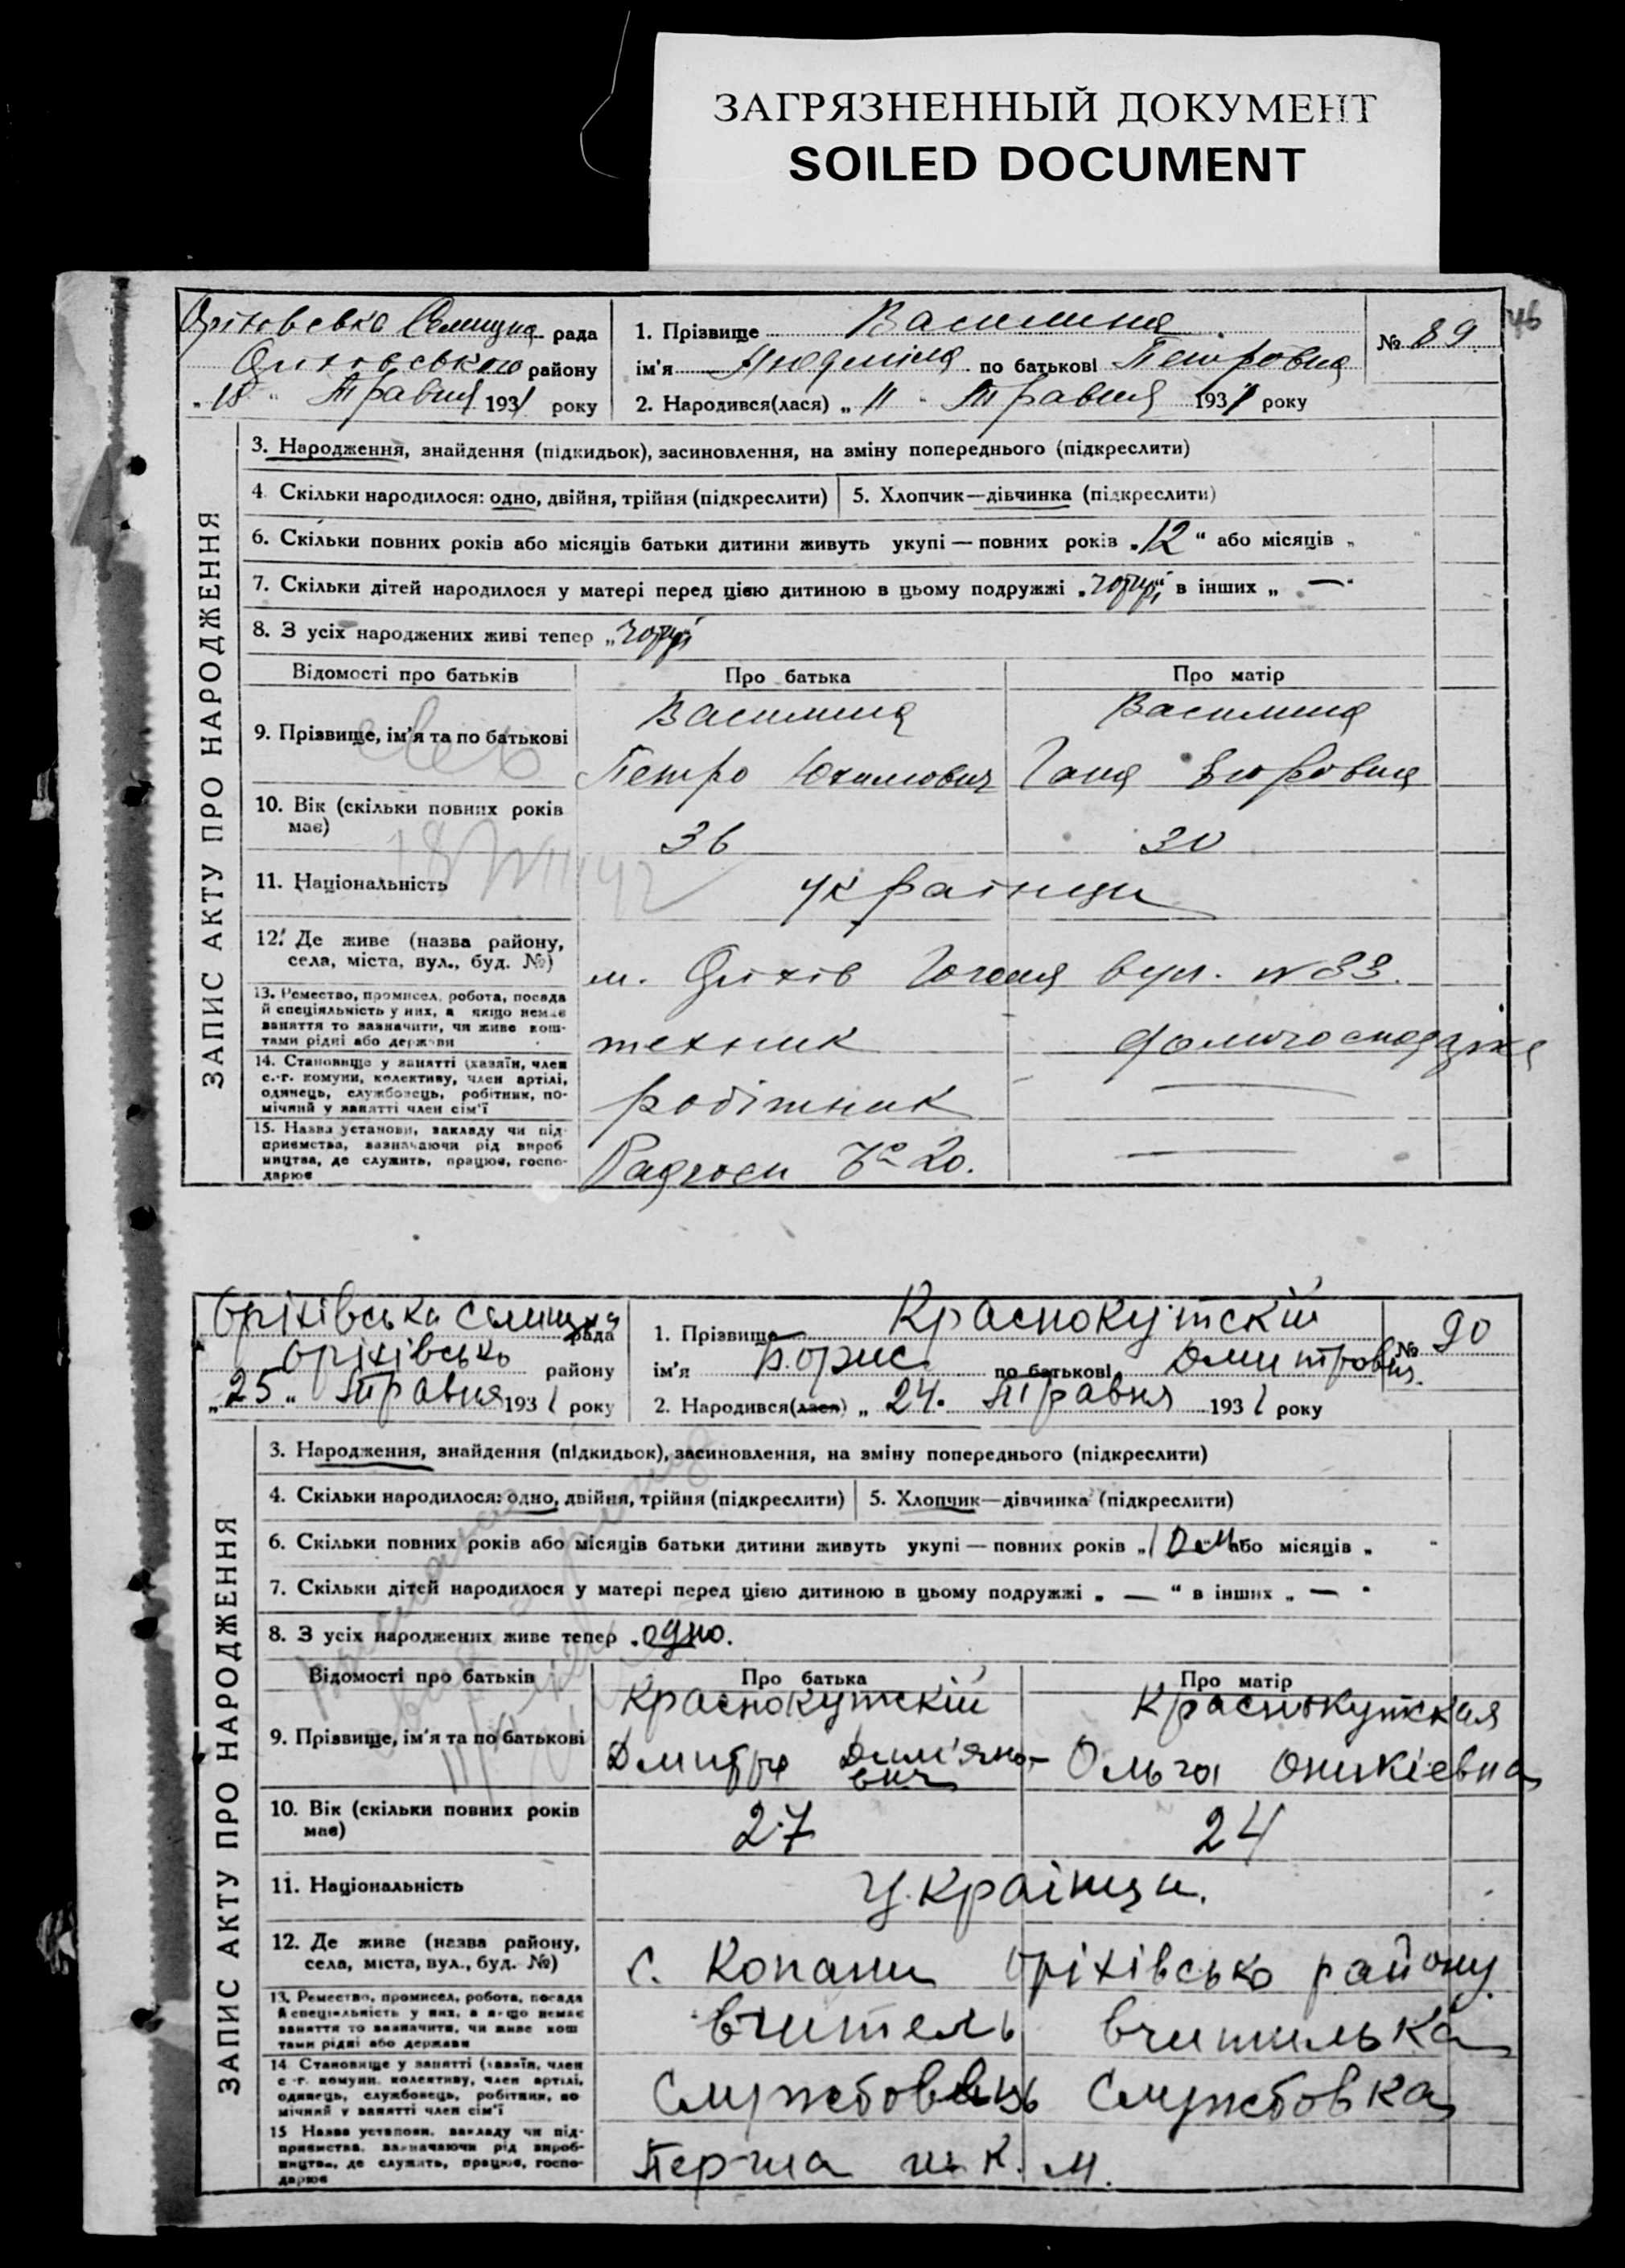 ЗАГРЯЗНЕННЫЙ ДОКУМЕНТ
SOILED DOCUMENT
46
Оріховська Селищна рада
Оріховського району
" 15 " Травня 1931 року
1. Прізвище Василина
ім'я Людміла по батькові Петровна
2. Народився(лася) „ 11 " Травня 1931 року
№ 89
ЗАПИС АКТУ ПРО НАРОДЖЕННЯ
3. Народження, знайдення (підкидьок), засиновлення, на зміну попереднього (підкреслити)
4. Скільки народилося: одно, двійня, трійня (підкреслити) 5. Хлопчик—дівчинка (підкреслити)
6. Скільки повних років або місяців батьки дитини живуть укупі — повних років „ 12 " або місяців „ "
7. Скільки дітей народилося у матері перед цією дитиною в цьому подружжі „ чотирі " в інших „ — "
8. З усіх народжених живі тепер „ чотирі "
Відомості про батьків Про батька Про матір
9. Прізвище, ім'я та по батькові Василина Василина
Петро Юхимович Ганя
10. Вік (скільки повних років має) 36 30
11. Національність українци
12. Де живе (назва району, села, міста, вул., буд. №) м. Оріхів вул. № 33.
13. Ремество, промисел, робота, посада й спеціяльність у них, а якщо немає заняття то зазначити, чи живе коштами рідні або держави технік домогосподарка
14. Становище у занятті (хазяїн, член с.-г. комуни, колективу, член артілі, одинець, службовець, робітник, помічний у занятті член сім'ї робітник —
15. Назва установи, закладу чи підприємства, зазначаючи рід виробництва, де служить, працює, господарює Радгосп № 20. —
Оріхівська селищна рада
Оріхівсько району
„ 25 " Травня 1931 року
1. Прізвище Краснокутскій
ім'я Борис по батькові Дмитрович.
2. Народився(лася) „ 24. Травня 1931 року
№ 90
ЗАПИС АКТУ ПРО НАРОДЖЕННЯ
3. Народження, знайдення (підкидьок), засиновлення, на зміну попереднього (підкреслити)
4. Скільки народилося: одно, двійня, трійня (підкреслити) 5. Хлопчик—дівчинка (підкреслити)
6. Скільки повних років або місяців батьки дитини живуть укупі — повних років „ 1 або місяців „ "
7. Скільки дітей народилося у матері перед цією дитиною в цьому подружжі „ — " в інших „ — "
8. З усіх народжених живе тепер „ одно.
Відомості про батьків Про батька Про матір
9. Прізвище, ім'я та по батькові Краснокутскій Краснокутская
Дмитро Дем'янович Ольга Оникіевна
10. Вік (скільки повних років має) 27 24
11. Національність Українци.
12. Де живе (назва району, села, міста, вул., буд. №) с. Копани Оріхівсько району
13. Ремество, промисел, робота, посада й спеціяльність у них, а якщо немає заняття то зазначити, чи живе коштами рідні або держави вчитель вчителька
14. Становище у занятті (хазяїн, член с.-г. комуни, колективу, член артілі, одинець, службовець, робітник, помічний у занятті член сім'ї Службовець Службовка
15. Назва установи, закладу чи підприємства, зазначаючи рід виробництва, де служить, працює, господарює Перша шк. м.